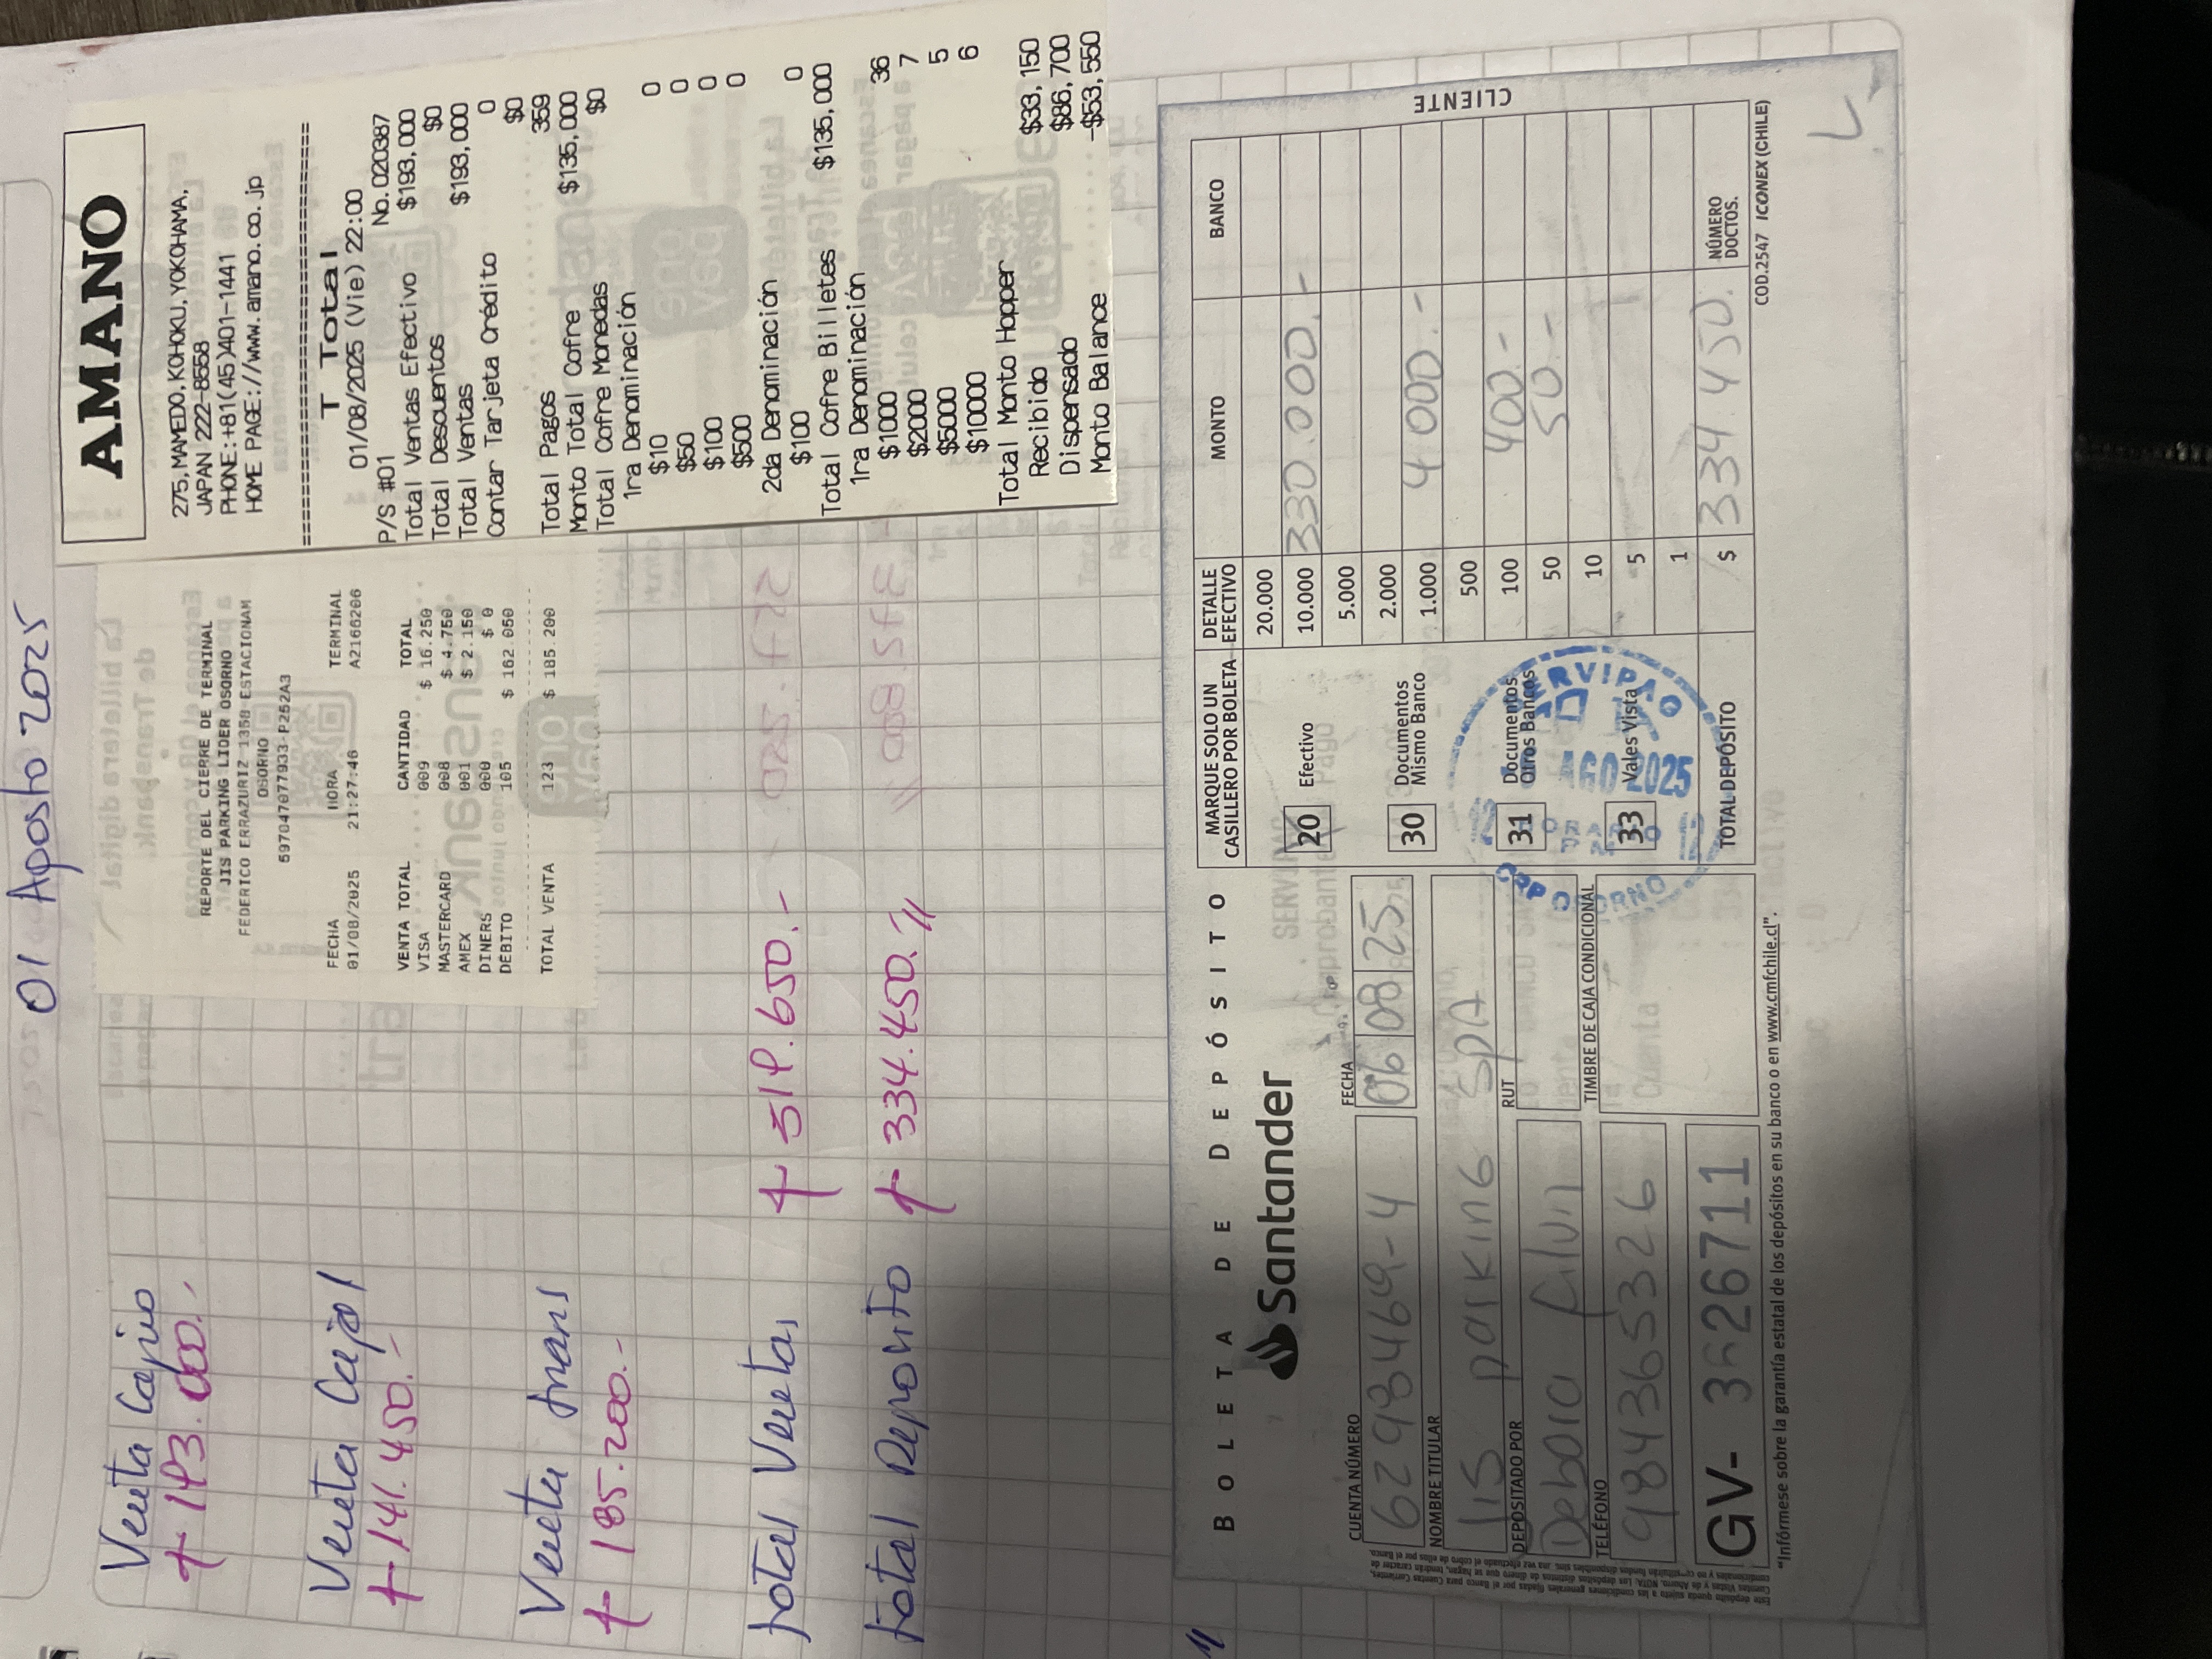 01 Agosto 2025
Venta Cajero
193.000.-
Venta Caja 1
141.450.-
Venta trans
185.200.-
Total Ventas 519.650.-
Total Deposito 334.450.//
REPORTE DEL CIERRE DE TERMINAL
JIS PARKING LIDER OSORNO
FEDERICO ERRAZURIZ 1350 ESTACIONAM
OSORNO
597047077933-P252A3
FECHA HORA TERMINAL
01/08/2025 21:27:46 A2166206
VENTA TOTAL CANTIDAD TOTAL
VISA 009 $ 16.250
MASTERCARD 008 $ 4.750
AMEX 001 $ 2.150
DINERS 000 $ 0
DEBITO 105 $ 162.050
TOTAL VENTA 123 $ 185.200
AMANO
275, MAMEDO, KOHOKU, YOKOHAMA,
JAPAN 222-8558
PHONE:+81(45)401-1441
HOME PAGE://www.amano.co.jp
T Total
01/08/2025 (Vie) 22:00
P/S #01 No.020387
Total Ventas Efectivo $193,000
Total Descuentos $0
Total Ventas $193,000
Contar Tarjeta Crédito 0
$0
Total Pagos 359
Monto Total Cofre $135,000
Total Cofre Monedas $0
1ra Denominación
$10 0
$50 0
$100 0
$500 0
2da Denominación
$100 0
Total Cofre Billetes $135,000
1ra Denominación
$1000 36
$2000 7
$5000 5
$10000 6
Total Monto Hopper
Recibido $33,150
Dispensado $86,700
Monto Balance -$53,550
BOLETA DE DEPÓSITO
Santander
CUENTA NÚMERO FECHA
62983469-4 06 08 25
NOMBRE TITULAR
JIS parking SPA
DEPOSITADO POR RUT
Debora
TELÉFONO TIMBRE DE CAJA CONDICIONAL
984365326
GV- 3626711
"Infórmese sobre la garantía estatal de los depósitos en su banco o en www.cmfchile.cl".
MARQUE SOLO UN CASILLERO POR BOLETA
20 Efectivo
30 Documentos Mismo Banco
31 Documentos Otros Bancos
33 Vales Vista
TOTAL DEPÓSITO
DETALLE EFECTIVO MONTO BANCO
20.000
10.000 330.000.-
5.000
2.000
1.000 4000.-
500
100 400.-
50 50.-
10
5
1
$ 334.450. NÚMERO DOCTOS.
COD.2547 ICONEX (CHILE)
CLIENTE
SERVIPAG
AGO 2025
OSORNO